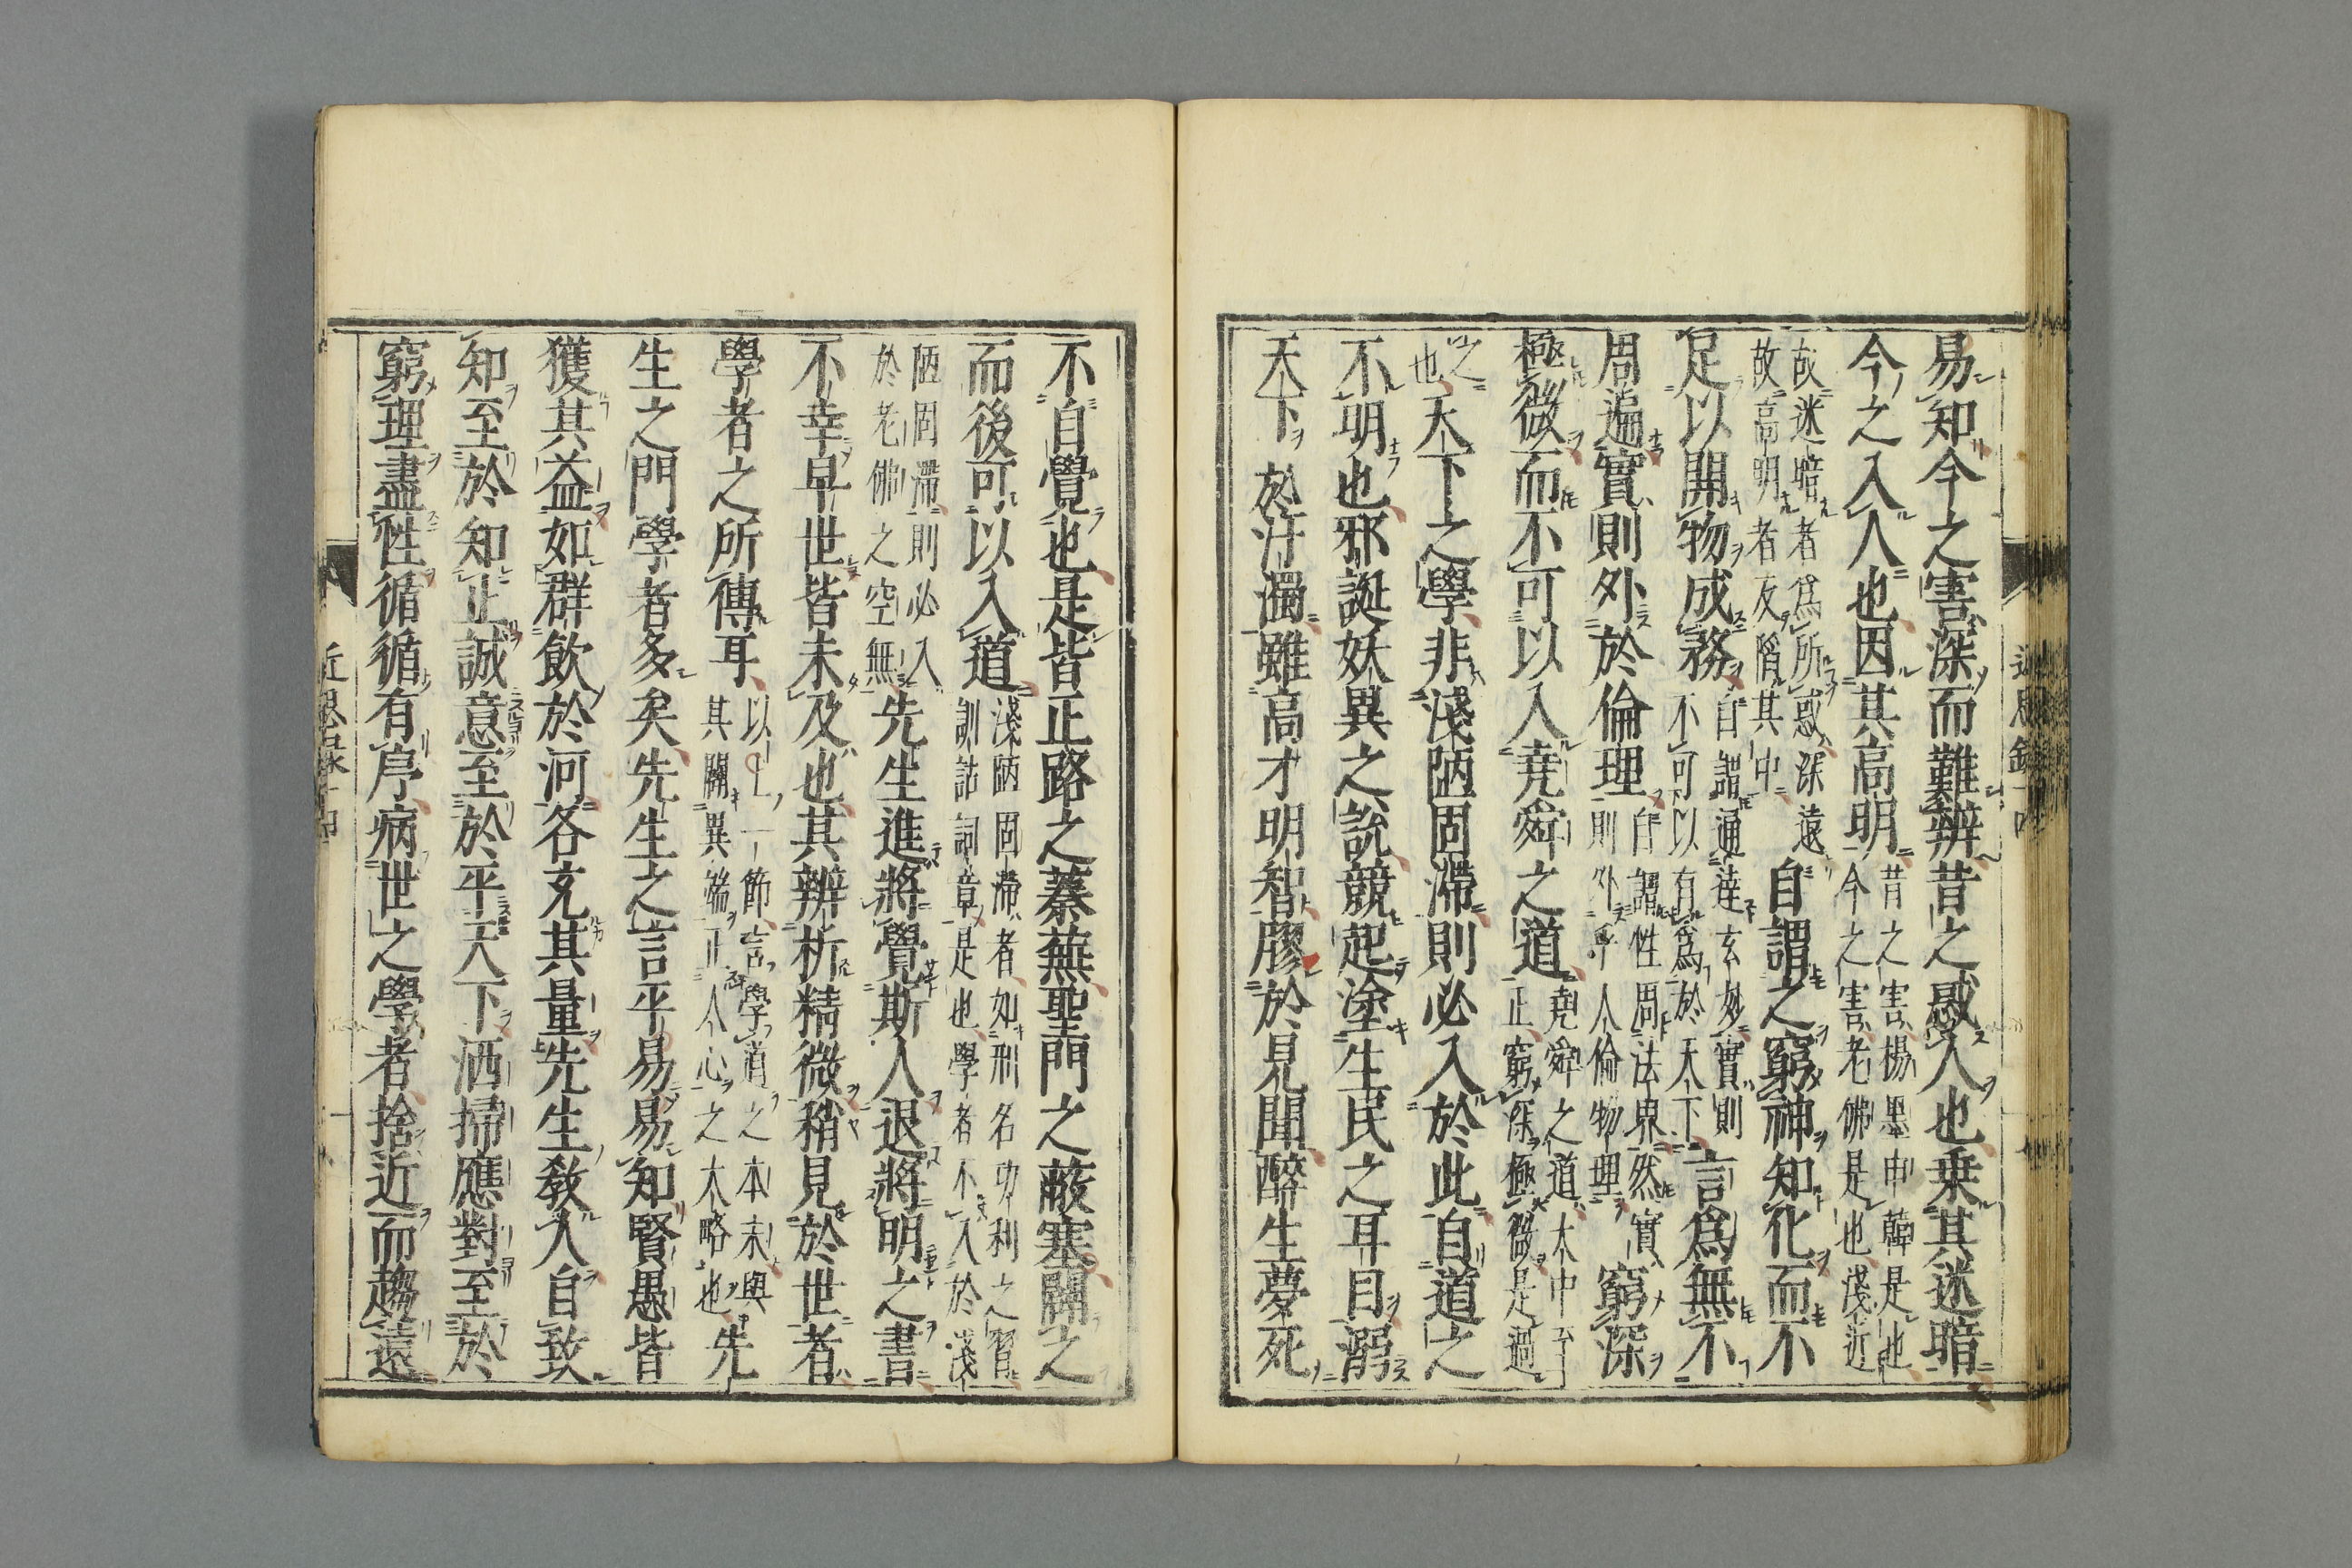 易知今之害深而難辨昔之惑人也乗其迷暗
今之入人也因其高明昔之害楊墨申韓是也
今之害老佛是也淺近
故迷暗者爲所惑深遠
故高明者反陷其中自謂之窮神知化而不
足以開物成務自謂通達玄妙實則
不可以有爲於天下言爲無不
周遍實則外於倫理自謂性周法界然實
則外乎人倫物理窮深
極微而不可以入堯舜之道堯舜之道大中至
正窮深極微是過
之
也天下之學非淺陋固滯則必入於此自道之
不明也邪誕妖異之説競起塗生民之耳目溺
天下於汙濁雖高才明智膠於見聞醉生夢死
不自覺也是皆正路之蓁蕪聖門之蔽塞闢之
而後可以入道淺陋固滯者如刑名功利之習
訓詁詞章是也學者不入於淺
陋固滯則必入
於老佛之空無先生進將覺斯人退將明之書
不幸早世皆未及也其辨析精微稍見於世者
學者之所傳耳以上一節言學道之本末與
其闢異端正人心之大略也先
生之門學者多矣先生之言平易易知賢愚皆
獲其益如群飲於河各充其量先生教人自致
知至於知止誠意至於平天下洒掃應對至於
窮理盡性循循有序病世之學者捨近而趨遠
近思録十四